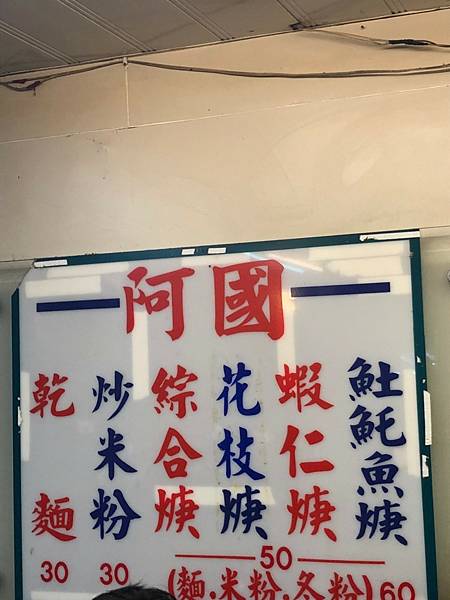 阿國
𩵚魠魚焿
蝦仁焿
花枝焿
綜合焿
炒米粉
乾麵
50
(麵.米粉.冬粉)60
30
30